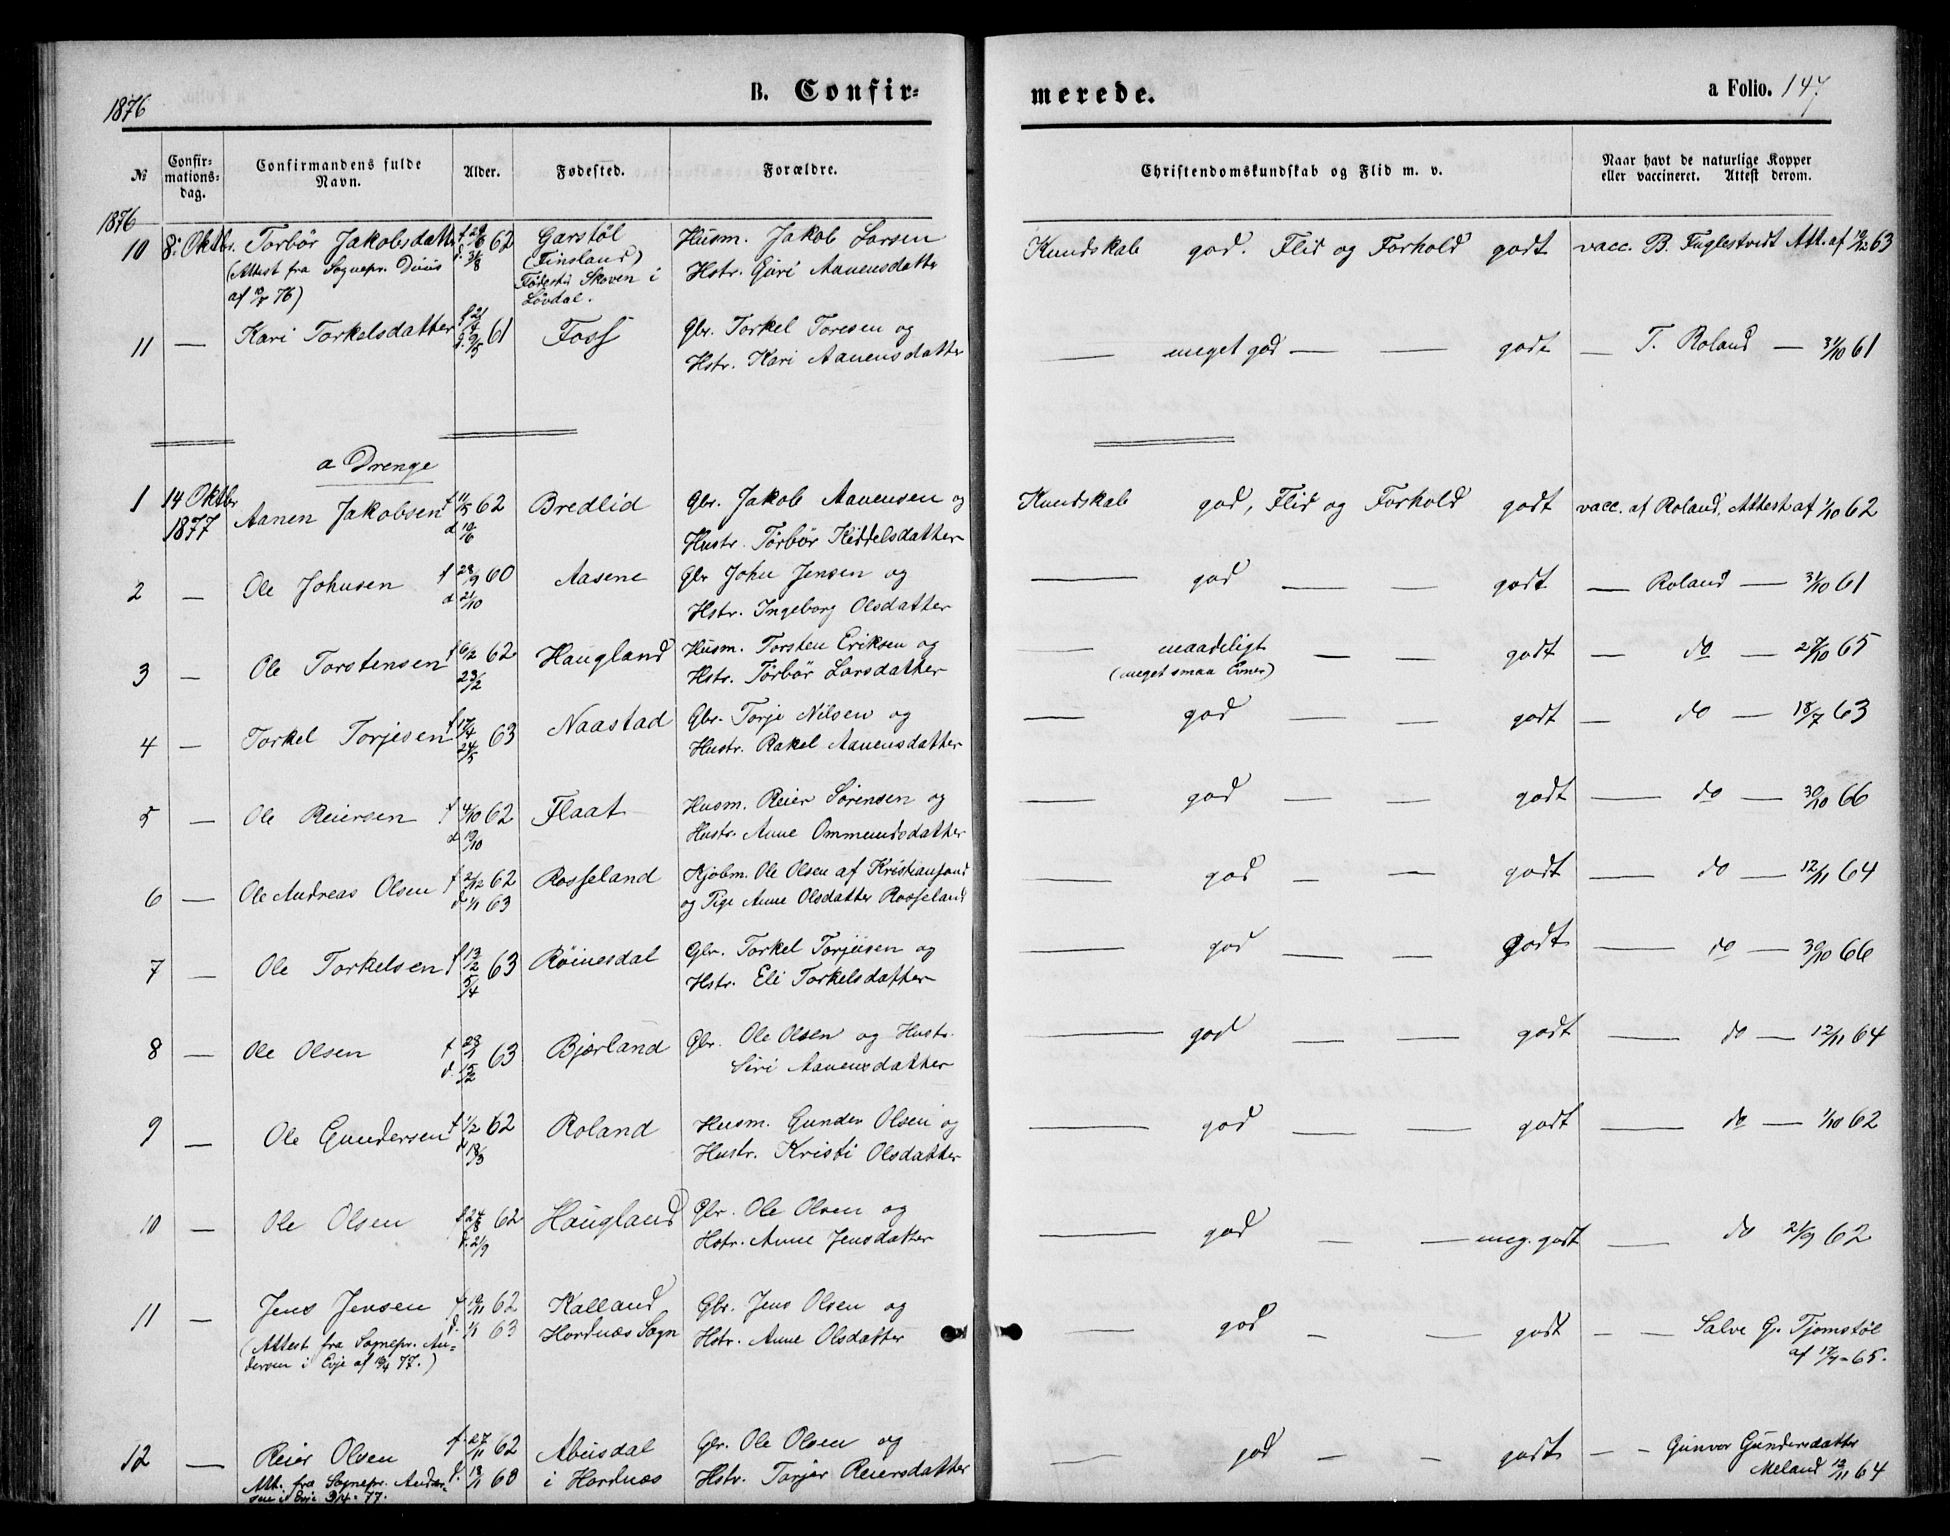 1876
B. Confirmerede.
a Folio. 147
№ Confirmationsdag. Confirmandens fulde Navn. Alder. Fødested. Forældre. Christendomskundskab og Flid m. v. Naar havt de naturlige Kopper eller vaccineret. Attest derom.
1876
10 8. Oktbr. Torbør Jakobsdatter f 62 Garstøl Husm. Jakob Larsen Kundskab god. Flid og Forhold godt vacc. B. Fuglestvedt Att. af 63
(Attest fra Sognepr. d. 3/8 (Finsland) Hstr. Guri Aanensdatter
af 76) Fødested Skoven i
Løvdal.
11 — Kari Torkelsdatter f 61 Foss Gbr. Torkel Toresen og — meget god — — godt — T. Roland — 31/10 61
Hstr. Kari Aanensdatter
a Drenge
1 14 Oktbr f 11/5 62 Bredlid Gbr. Jakob Aanensen og Kundskab god, Flid og Forhold godt vacc. af Roland, Attest af 1/10 62
1877 Aanen Jakobsen d Hustr. Tørbør Kiddelsdatter
2 — Ole Johnsen f 28/9 60 Aasene Gbr John Jensen og — god — — godt — Roland — 31/10 61
d 21/10 Hstr. Ingeborg Olsdatter
3 — Ole Torstensen f 6/2 62 Haugland Husm. Torsten Eriksen og — maadeligt — — godt — do — 27/10 65
23/2 Hstr. Tørbør Larsdatter (meget smaa Evner)
4 — Torkel Torjesen f 17/4 63 Naastad Gbr. Torje Nilsen og — god — — godt — do — 18/7 63
24/5 Hustr. Rakel Aanensdatter
5 — Ole Reiersen f 4/10 62 Flaat Husm. Reier Sørensen og — god — — godt — do — 30/10 66
d 19/10 Hustr. Anne Ommundsdatter
6 — Ole Andreas Olsen f 2/12 62 Rosseland Kjøbm. Ole Olsen af Kristiansand — god — — godt — do — 12/11 64
d 1/1 63 og Pige Anne Olsdatter Rosseland
7 — Ole Torkelsen f 13/2 63 Røinesdal Gbr. Torkel Torjusen og — god — — godt — do — 30/10 66
5/4 Hstr. Eli Torkelsdatter
8 — Ole Olsen f 63 Bjørland Gbr. Ole Olsen og Hustr. — god — — godt — do — 12/11 64
d. 15/2 Siri Aanensdatter
9 — Ole Gundersen f 1/2 62 Roland Husm. Gunder Olsen og — god — — godt — do — 1/10 62
d 18/3 Hustr. Kristi Olsdatter
10 — Ole Olsen f 24/8 62 Haugland Gbr. Ole Olsen og — god — — meg. godt — do 21/9 62
d. 21/9 Hstr. Anne Jensdatter
11 — Jens Jensen f 62 Kalland Gbr. Jens Olsen og — god — — godt — — Salve G. Tjomstøl
d. 1/1 63 Hordnæs Sogn Hstr. Anne Olsdatter af 65.
(Attest fra Sognepr. An-
dersen i Evje af 77.)
12 — Reier Olsen f. 27/11 62 Abusdal Gbr. Ole Olsen og — god — — godt — — Gunvor Gundersdatter
Att. fra Sognepr. Ander- d. i Hordnæs Hstr. Torjer Reiersdatter Meland 64
sen i Evje 3/4 - 77.